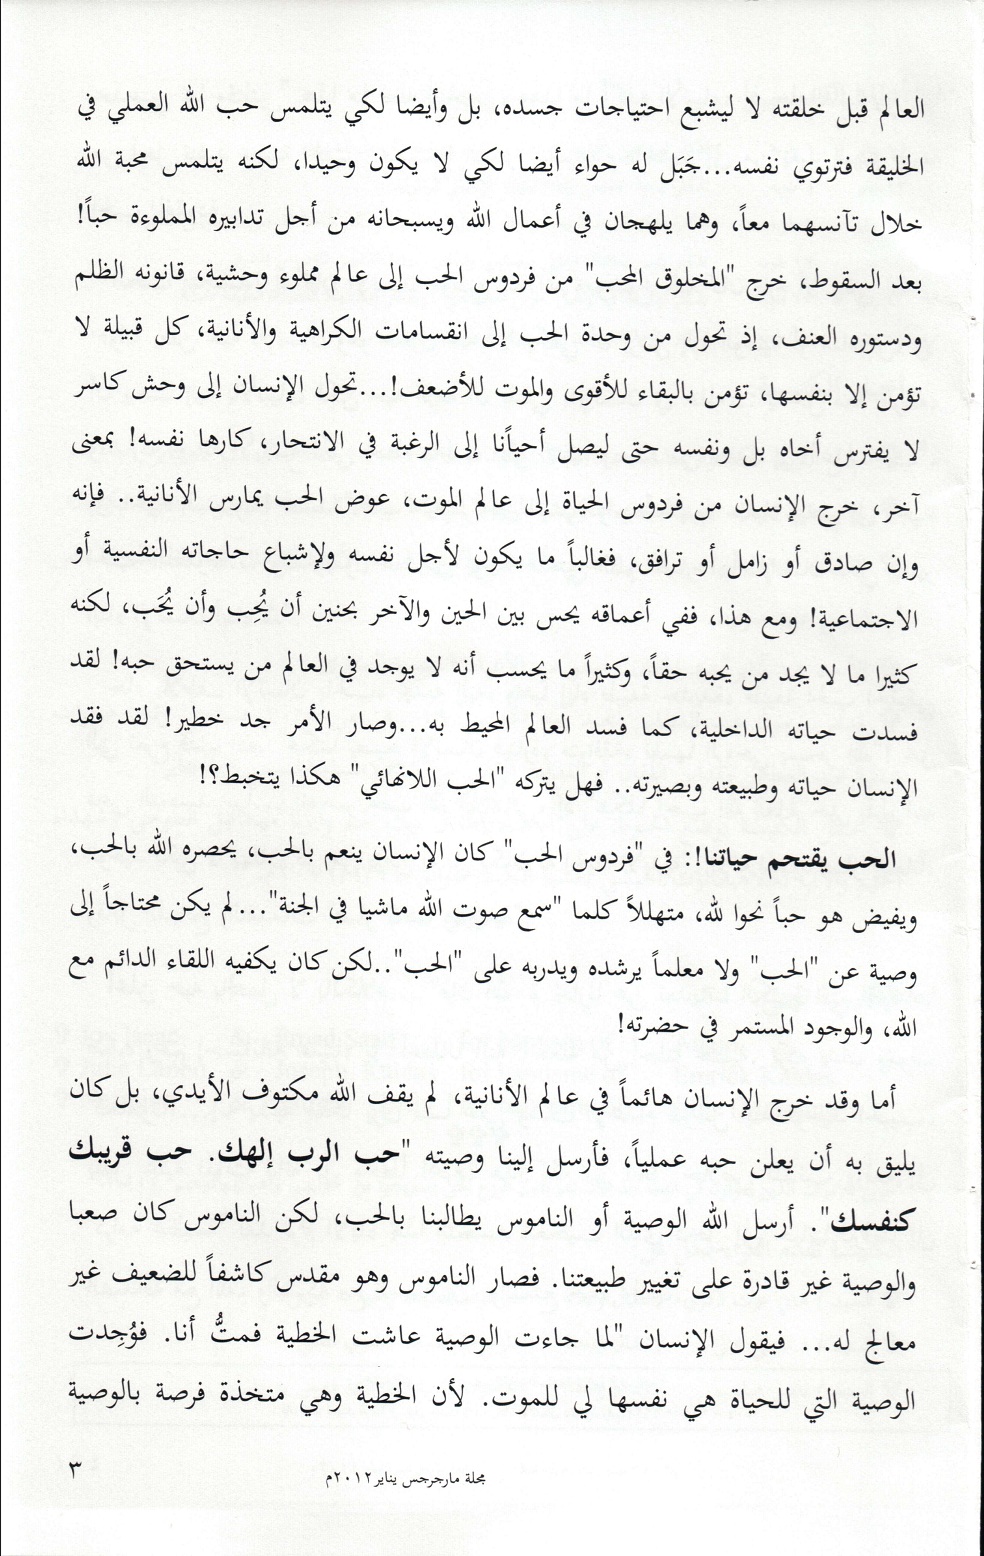 العالم قبل خلقته لا ليشبع احتياجات جسده، بل وأيضا لكي يتلمس حب الله العملي في
الخليقة فترتوي نفسه...جَبَل له حواء أيضا لكي لا يكون وحيدا، لكنه يتلمس محبة الله
خلال تآنسهما معاً، وهما يلهجان في أعمال الله ويسبحانه من أجل تدابيره المملوءة حباً!
بعد السقوط، خرج "المخلوق المحب" من فردوس الحب إلى عالم مملوء وحشية، قانونه الظلم
ودستوره العنف، إذ تحول من وحدة الحب إلى انقسامات الكراهية والأنانية، كل قبيلة لا
تؤمن إلا بنفسها، تؤمن بالبقاء للأقوى والموت للأضعف!...تحول الإنسان إلى وحش كاسر
لا يفترس أخاه بل ونفسه حتى ليصل أحياًنا إلى الرغبة في الانتحار، كارها نفسه! بمعنى
آخر، خرج الإنسان من فردوس الحياة إلى عالم الموت، عوض الحب يمارس الأنانية.. فإنه
وإن صادق أو زامل أو ترافق، فغالباً ما يكون لأجل نفسه ولإشباع حاجاته النفسية أو
الاجتماعية! ومع هذا، ففي أعماقه يحس بين الحين والآخر بحنين أن يُحِب وأن يُحَب، لكنه
كثيرا ما لا يجد من يحبه حقاً، وكثيراً ما يحسب أنه لا يوجد في العالم من يستحق حبه! لقد
فسدت حياته الداخلية، كما فسد العالم المحيط به...وصار الأمر جد خطير! لقد فقد
الإنسان حياته وطبيعته وبصيرته.. فهل يتركه "الحب اللانهائي" هكذا يتخبط؟!
الحب يقتحم حياتنا!: في "فردوس الحب" كان الإنسان ينعم بالحب، يحصره الله بالحب،
ويفيض هو حباً نحوا لله، متهللاً كلما "سمع صوت الله ماشيا في الجنة"...لم يكن محتاجاً إلى
وصية عن "الحب" ولا معلماً يرشده ويدربه على "الحب"..لكن كان يكفيه اللقاء الدائم مع
الله، والوجود المستمر في حضرته!
أما وقد خرج الإنسان هائماً في عالم الأنانية، لم يقف الله مكتوف الأيدي، بل كان
يليق به أن يعلن حبه عملياً، فأرسل إلينا وصيته "حب الرب إلهك. حب قريبك
كنفسك". أرسل الله الوصية أو الناموس يطالبنا بالحب، لكن الناموس كان صعبا
والوصية غير قادرة على تغيير طبيعتنا. فصار الناموس وهو مقدس كاشفاً للضعيف غير
معالج له... فيقول الإنسان "لما جاءت الوصية عاشت الخطية فمتُّ أنا. فوُجِدت
الوصية التي للحياة هي نفسها لي للموت. لأن الخطية وهي متخذة فرصة بالوصية
مجلة مارجرجس يناير٢٠١٢م
٣